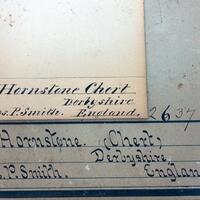 Hornstone Chert
Derbyshire
s. P. Smith. England.
2637
Hornstone. (Chert,
Derbyshire,
s. P. Smith. Englan